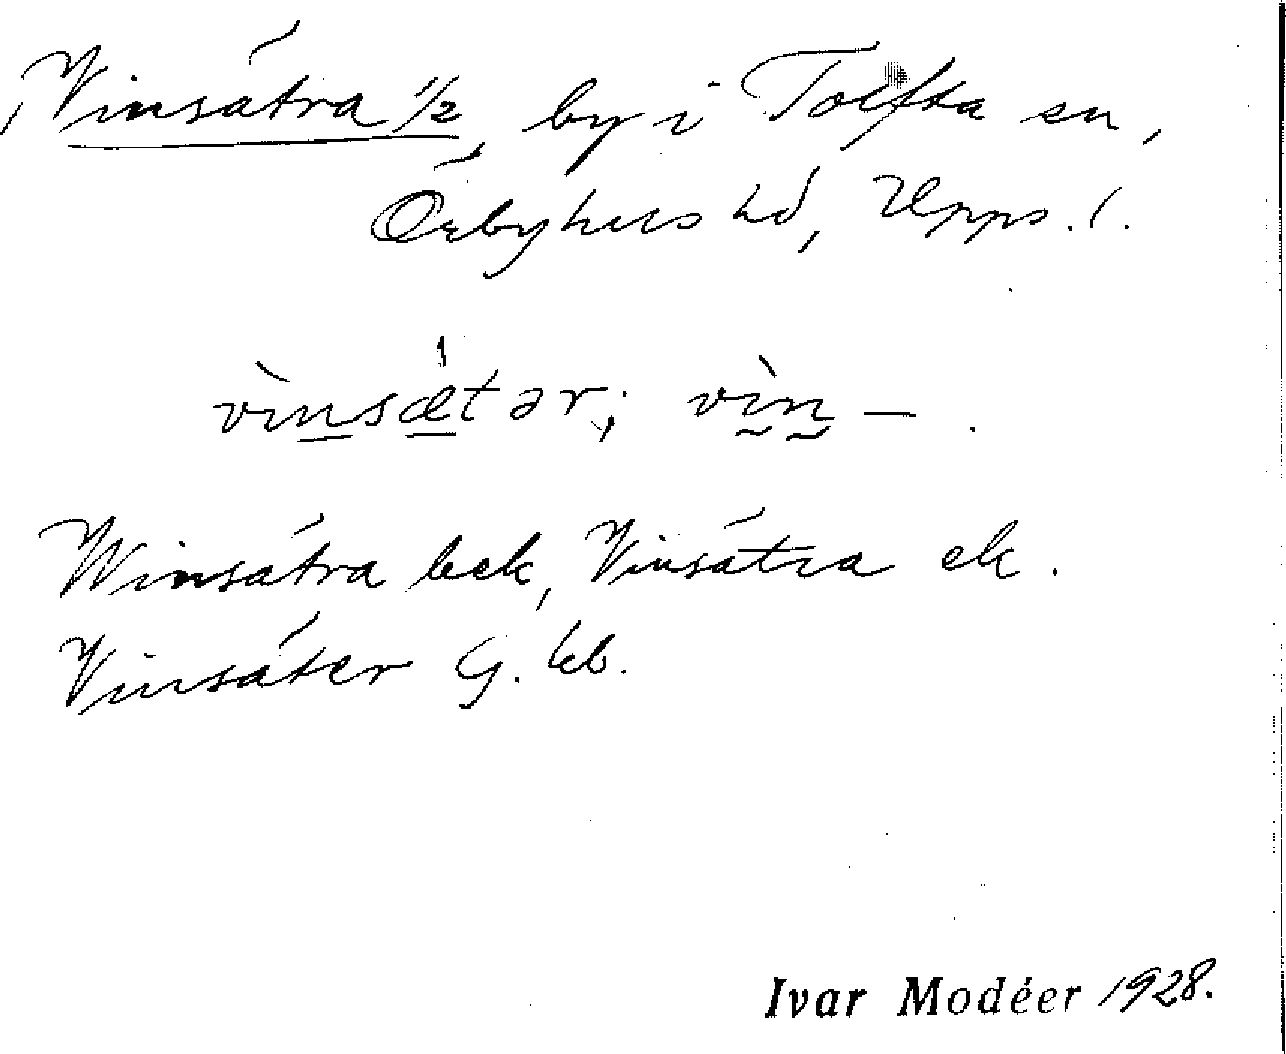 Vinsätra 1/2, by i Tolfta sn,
Örbyhus hd, Upps. l.
vìnsǽtər; vìn – .
Winsätra bek, Vinsätra ek.
Vinsäter G. kb.
Ivar Modéer 1928.